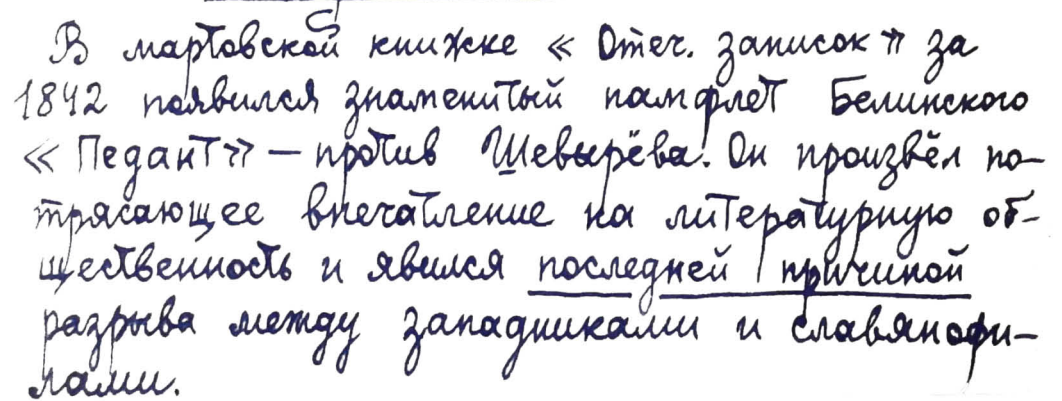 В мартовской книжке « Отеч. записок » за
1842 появился знаменитый памфлет Белинского
« Педант » — против Шевырёва. Он произвёл по-
трясающее впечатление на литературную об-
щественность и явился последней причиной
разрыва между западниками и славянофи-
лами.